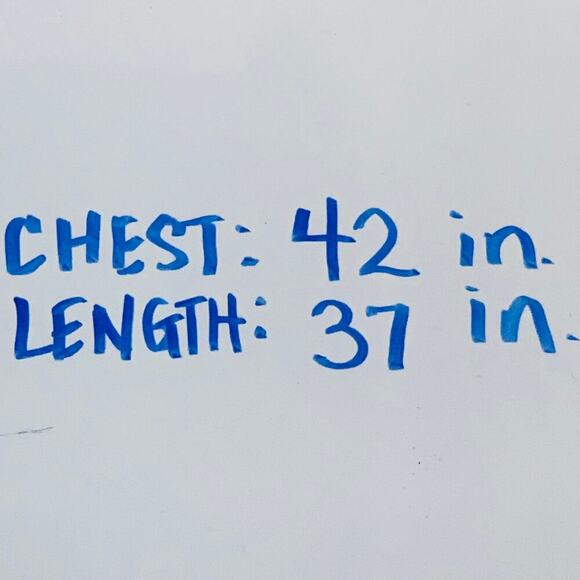 CHEST: 42 in.
LENGTH: 37 in.